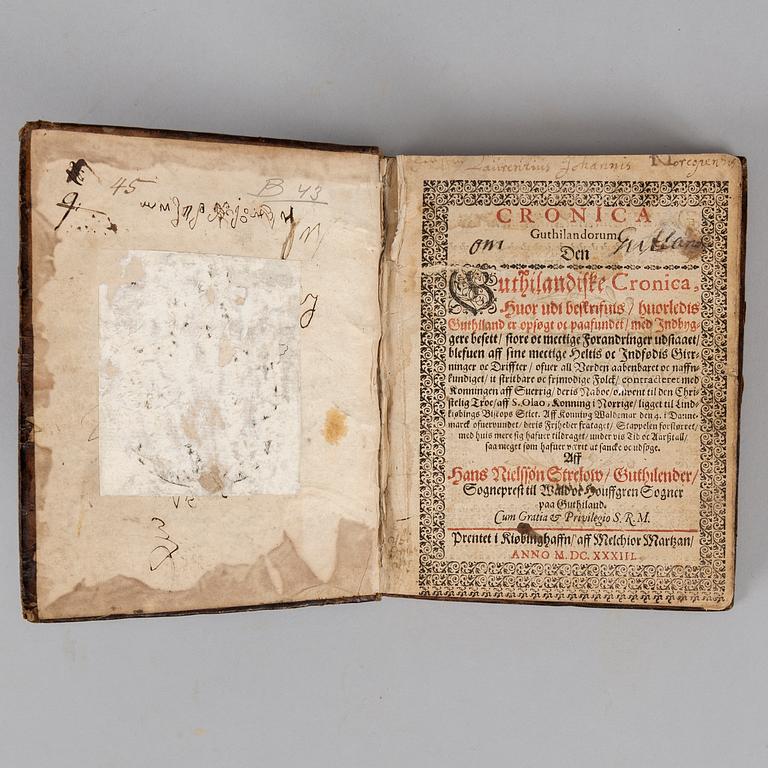 45
B 43
Laurentius Johannis Noregiensis
CRONICA
Guthilandorum
om Gutland
Den
Guthilandiske Cronica,
Huor udi beskrifuis / huorledis
Guthiland er opsøgt oc paafundet / med Indbyg-
gere besett / store oc mectige Forandringer udstaaet /
blefuen aff sine mectige Heltis oc Indfødis Gier-
ninger oc Driffter / ofuer all Verden aabenbaret oc naffn-
kundiget / it stridbare oc frjmodige Folck / contracteret med
Konningen aff Suerrig / deris Naboe / omvent til den Chri-
stelig Troe / aff S. Olao, Konning i Norrige / ligget til Lind-
kiøbings Biscops Stict. Aff Konning Waldemar den 4. i Dann-
marck ofuervundet / deris Frjheder frataget / Stappelen forstørret /
med huis mere sig hafuer tildraget / under vis Tid oc Aarstall /
saa meget som hafuer værit at sancke oc udsøge.
Aff
Hans Nielssøn Strelow / Guthilender /
Sogneprest til Wald oc Houffgren Sogner
paa Guthiland.
Cum Gratia & Privilegio S. R. M.
Prentet i Kiøbinghaffn / aff Melchior Martzan /
ANNO M. DC. XXXIII.